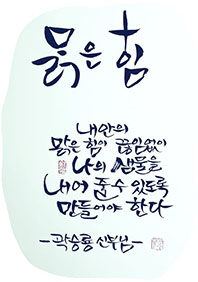 묽은 힘
내 안의
맑은 힘이 끊임없이
나의 샘물을
내어 줄 수 있도록
만들어야 한다
-곽승룡 신부님-